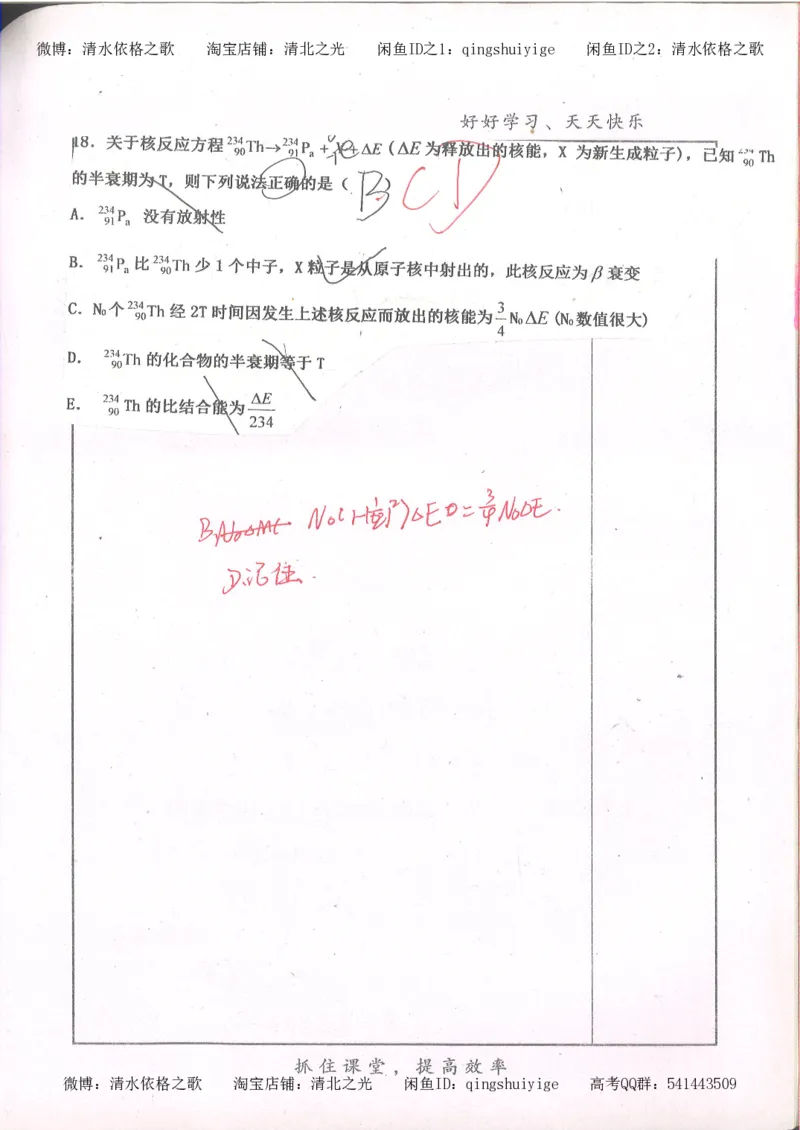 微博：清水依格之歌 淘宝店铺：清北之光 闲鱼ID之1：qingshuiyige 闲鱼ID之2：清水依格之歌
好好学习、天天快乐
18. 关于核反应方程 ²³⁴₉₀Th→²³⁴₉₁Pₐ+X+ΔE（ΔE为释放出的核能，X 为新生成粒子），已知 ²³⁴₉₀Th
的半衰期为 T，则下列说法正确的是（ B ） CD
A. ²³⁴₉₁Pₐ 没有放射性
B. ²³⁴₉₁Pₐ 比 ²³⁴₉₀Th 少 1 个中子，X 粒子是从原子核中射出的，此核反应为β衰变
C. N₀个 ²³⁴₉₀Th 经 2T 时间因发生上述核反应而放出的核能为 3/4 N₀ΔE (N₀数值很大)
D. ²³⁴₉₀Th 的化合物的半衰期等于 T
E. ²³⁴₉₀Th 的比结合能为 ΔE/234
D记住.
抓住课堂，提高效率
微博：清水依格之歌 淘宝店铺：清北之光 闲鱼ID：qingshuiyige 高考QQ群：541443509